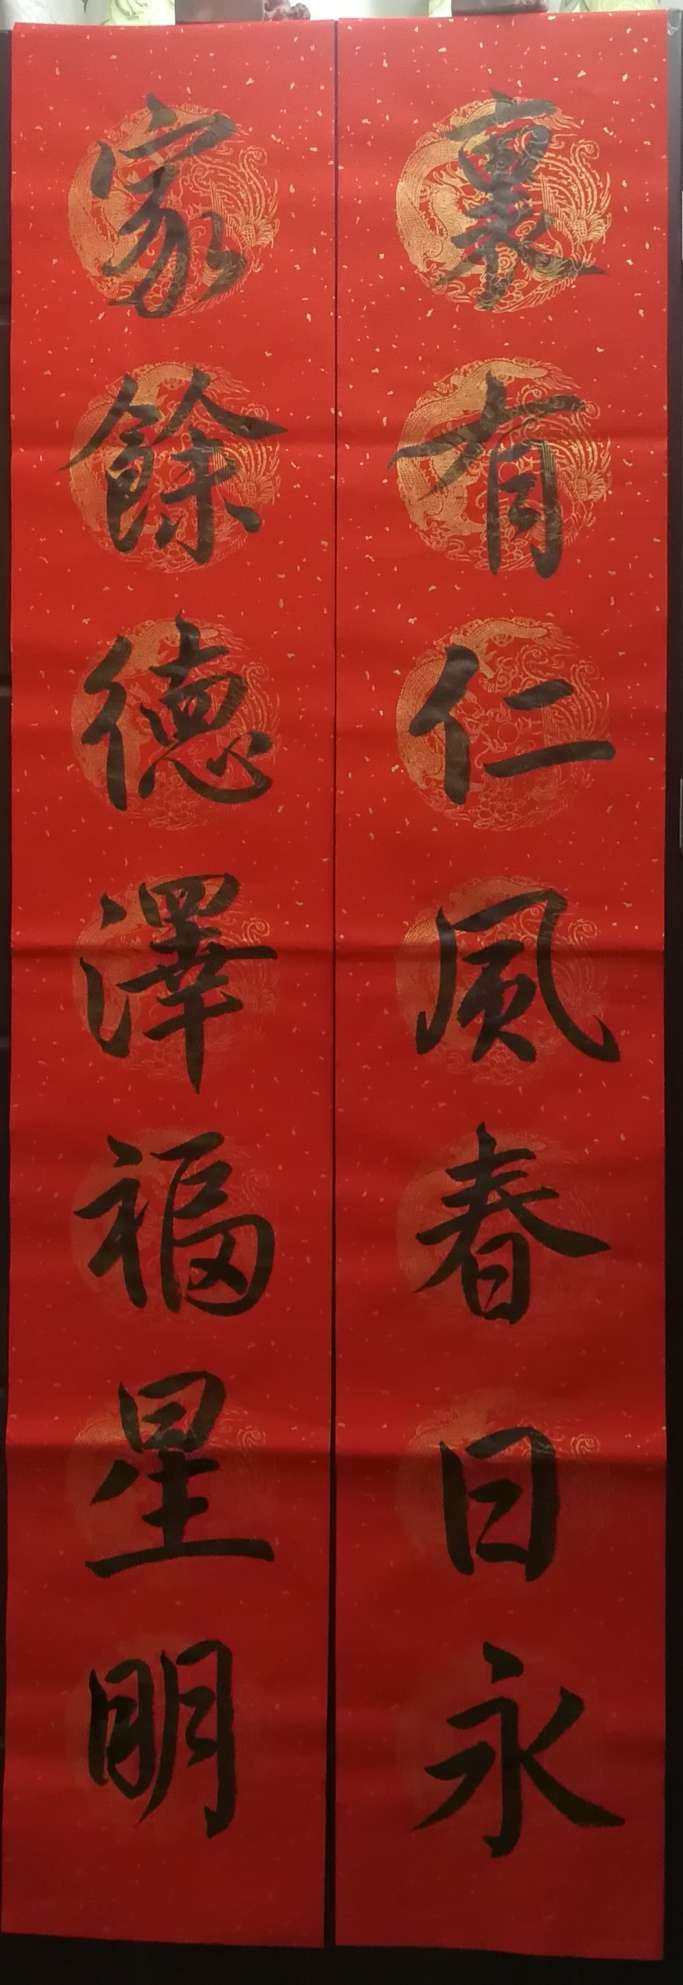 裏有仁風春日永
家餘德澤福星明